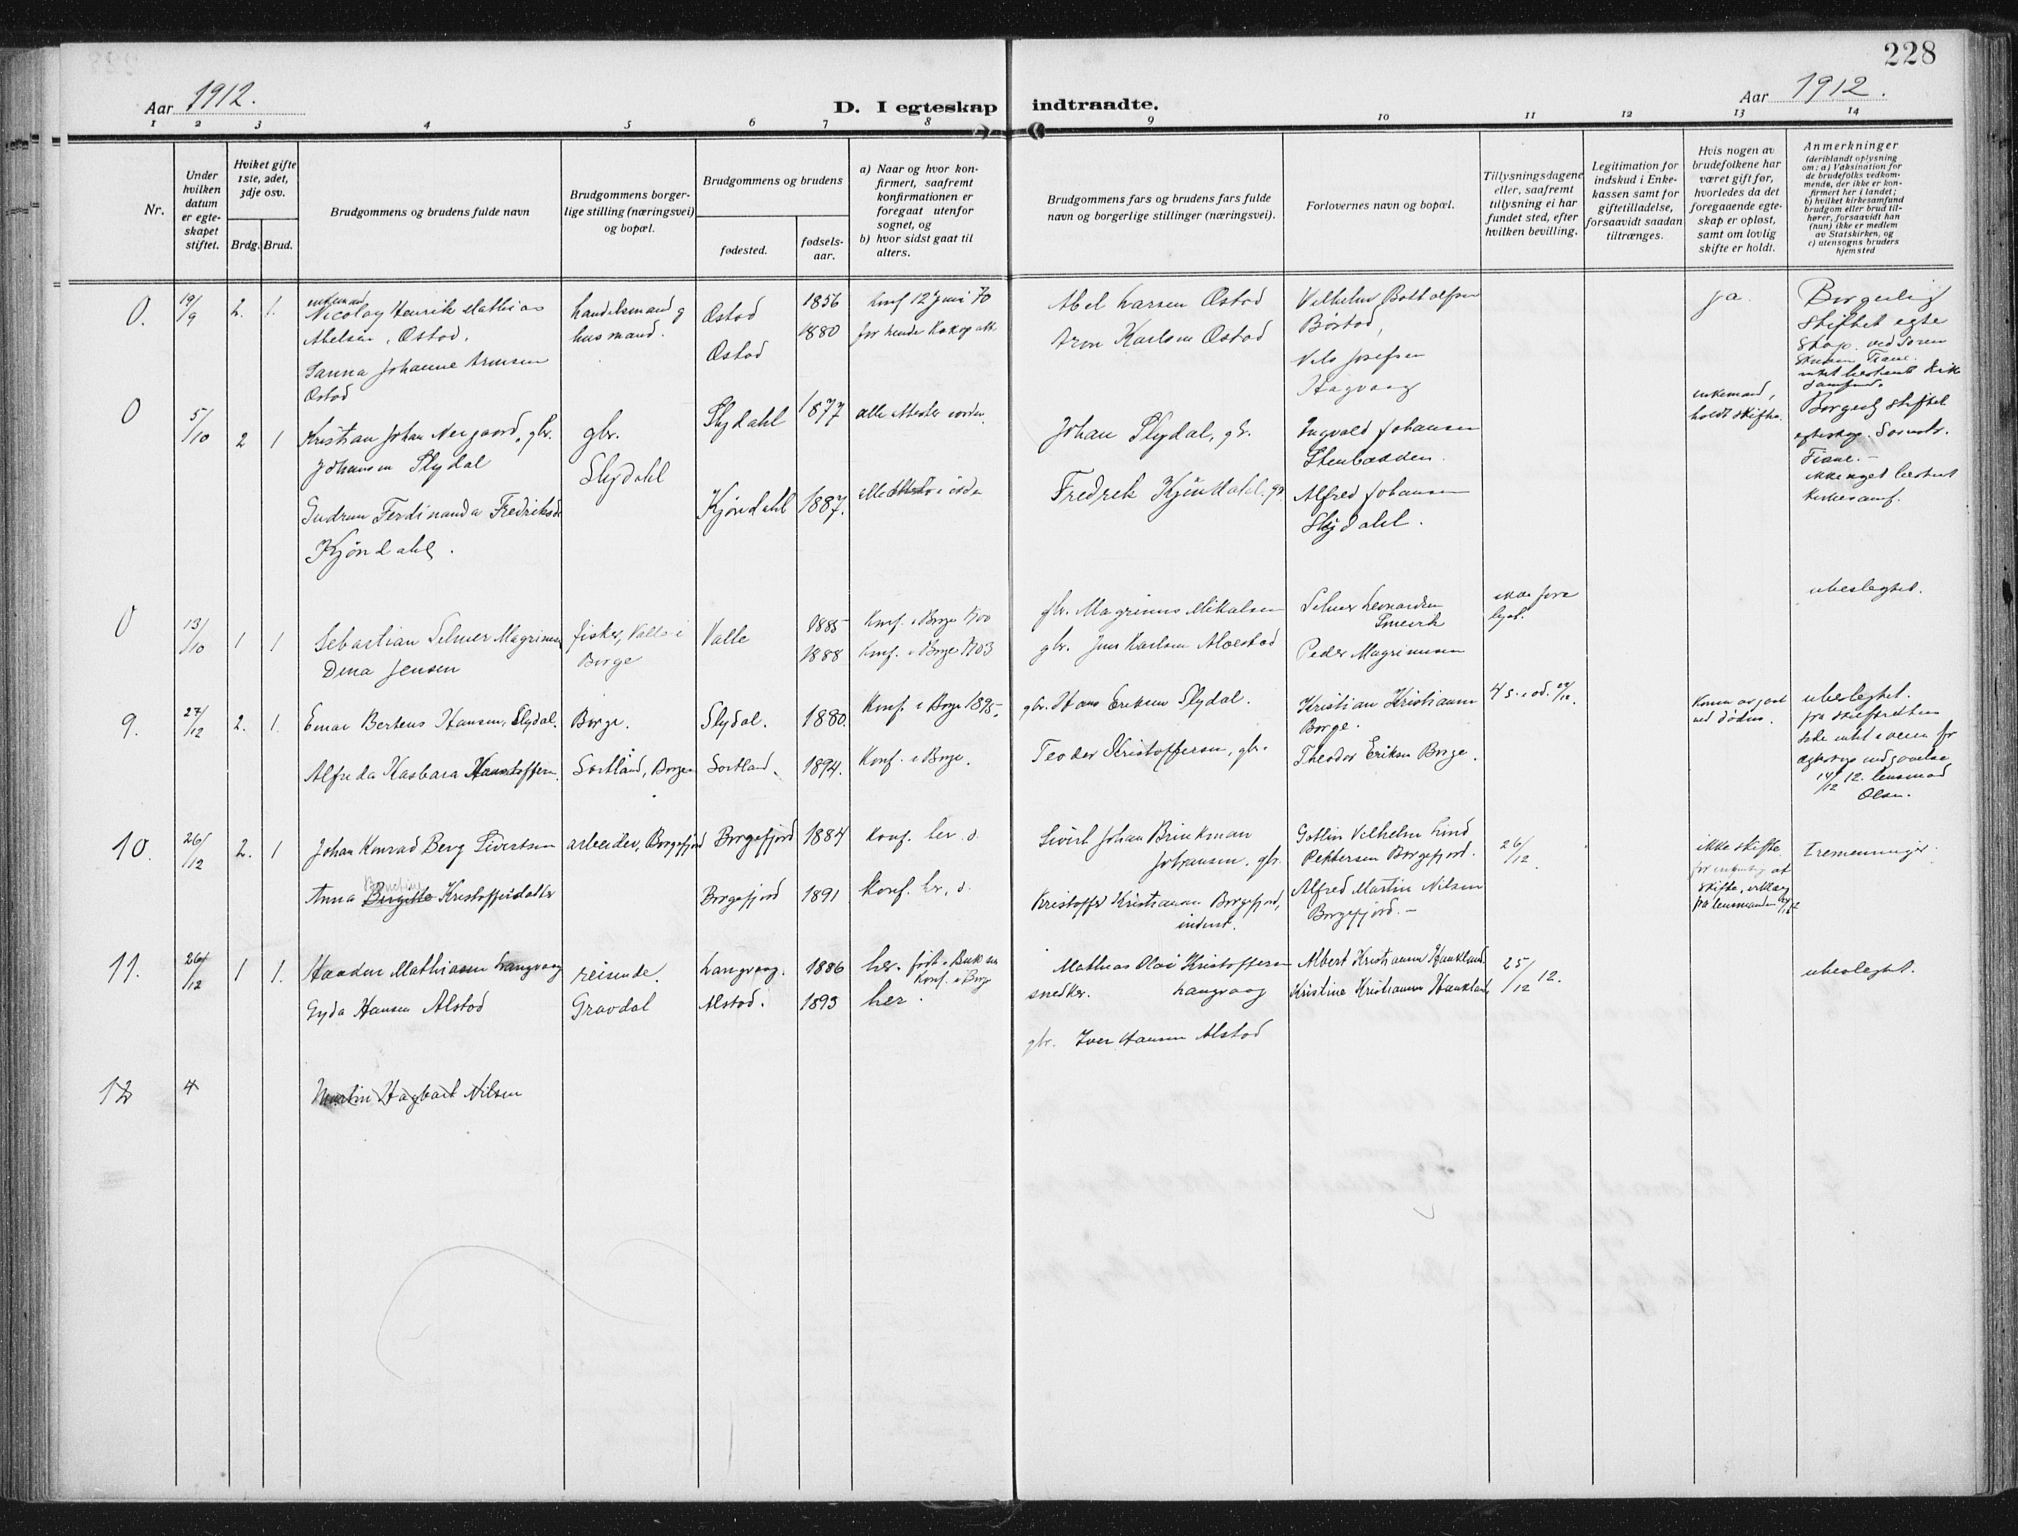 228
Aar 1912.
D. I egteskap indtraadte.
Aar 1912.
1 2 3 4 5 6 7 8 9 10 11 12 13 14
Nr.
Under hvilken datum er egte-skapet stiftet.
Hviket gifte 1ste, 2det, 3dje osv.
Brdg. Brud.
Brudgommens og brudens fulde navn
Brudgommens borger-lige stilling (næringsvei) og bopæl.
Brudgommens og brudens
fødested. fødsels-aar.
a) Naar og hvor kon-firmert, saafremt konfirmationen er foregaat utenfor sognet, og
b) hvor sidst gaat til alters.
Brudgommens fars og brudens fars fulde navn og borgerlige stillinger (næringsvei).
Forlovernes navn og bopæl.
Tillysningsdagene eller, saafremt tillysning ei har fundet sted, efter hvilken bevilling.
Legitimation for indskud i Enke-kassen samt for giftetilladelse, forsaavidt saadan tiltrænges.
Hvis nogen av brudefolkene har været gift før, hvorledes da det foregaaende egte-skap er opløst, samt om lovlig skifte er holdt.
Anmerkninger
(deriblandt oplysning om: a) Vaksination for de brudefolks vedkom-mende, der ikke er kon-firmert her i landet; b) hvilket kirkesamfund brudgom eller brud til-hører, forsaavidt han (hun) ikke er medlem av Statskirken, og c) utensogns bruders hjemsted
0. 19/9 2. 1.
enkemand
Nicolay Henrik Mathias
Abelsen, Østad.
Sanna Johanne Arnsen
Østad
handelsmand g
husmand.
Østad 1856
Østad 1880
Konf 12 Juni 70
Abel Larsen Østad
Aron Karlsen Østad
Vilhelm Bottolfsen
Børstad,
Nils Josefsen
Hagvaag
ja.
Borgerlig
stiftet egte
skap. ved Soren
0 5/10 2 1
Kristian Johan Nergaard, gbr.
Johansen Slydal
Gudrun Ferdinanda Fredriksd
Kjøndahl.
gbr.
Slydahl
Slydahl 1877
Kjøndahl 1887.
alle attester iorden.
Johan Slydal, gbr.
Fredrek Kjøndahl. gbr
Ingvald Johansen
Stenbakken.
Alfred Johansen
Slydahl.
enkemand,
holdt skifte.
Borgerlig stiftet
egteskap.
ikke noget bestemt
kirkesamf.
0 13/10 1 1
Sebastian Selmer Magnussen
Dina Jensen
fisker, Valle i
Borge
Valle 1885
1888
Konf. i Borge 1900
Konf. i Borge 1903
gbr. Magnnus Mikalsen
gbr. Jens Karlsen Alvestad
Selmer Leonardsen
Peder Magnussen
ubeslegtet.
9. 27/12 2. 1.
Einar Berteus Hansen, Slydal.
Alfreda Kasbara Kristoffersen.
Borge.
Sortland, Borge
Slydal. 1880.
Sortland. 1894.
Konf. i Borge 1895.
Konf. i Borge.
gbr. Hans Eriksen Slydal.
Teodor Kristoffersen, gbr.
Kristian Kristiansen
Borge.
Theodor Eriksen Borge.
4 s. i ad. 22/12.
ved døden.
ubeslegtet.
14/12 12. lensmand
Olsen.
10. 26/12 2. 1
Johan Konrad Berg Sivertsen
Anna Birgitte Kristoffersdatter
arbeider, Borgefjord
Borgefjord 1884
Borgefjord 1891
Konf. her. s.
Konf. her, s.
Sivert Johan Brinkman
Johansen, gbr.
Kristoffer Kristiansen Borgefjord,
inderst.
Gotlin Vilhelm Lind
Pettersen Borgefjord.
Alfred Martin Nilsen
Borgefjord. –
26/12.
ikke skifte
skifte, erklæg
fra lensmanden
tremenninger
11. 26/12 1 1.
Haakon Mathiassen Langvaag
Gyda Hansen Alstad
reisende.
Gravdal
Langvaag. 1886
Alstad. 1893
her. født i Buksn
Konf. i Borge
her.
Mathias Olai Kristoffersen
snedker. Langvaag
gbr. Iver Hansen Alstad
Albert Kristiansen Haukland
Kristine Kristiansen Haukland
25/12 12.
ubeslegtet.
12 4
Martin Hagbart Nilsen